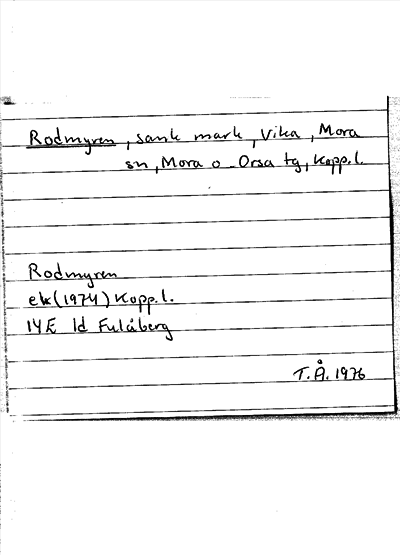 Rodmyren, sank mark, Vika, Mora
sn, Mora o. Orsa tg, Kopp.l.
Rodmyren
ek (1974) Kopp.l.
14E 1d Fulåberg
T.Å. 1976